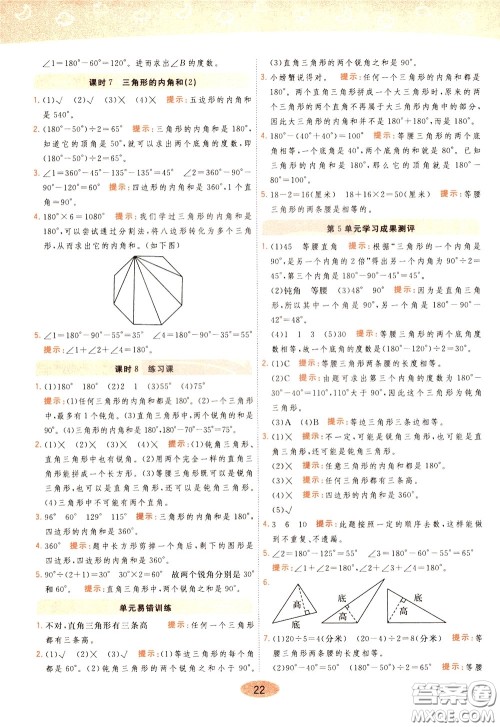 ∠1=180°-60°=120°。进而求出∠B的度数。
课时7 三角形的内角和(2)
1. (1)√ (2)√ (3)× (4)× 提示:五边形的内角和
是540°。
2. (180°-50°)÷2=65° 提示:三角形的内角和是180°,
知道它的顶角是50°,就可以求出两个底角的度数,即
(180°-50°)÷2=65°。
3. ∠1=360°-45°-135°-90°=90° ∠2=360°-
90°-120°-90°=60° 提示:四边形的内角和是360°。
4. 180°×6=1080° 提示:我们学过三角形的内角和为
180°,可以尝试通过分割法,将八边形转化为多个三角
形,从而求出它的内角和。(如下图)
5. ∠1=180°-90°-55°=35° ∠4=180°-35°=145°
提示:∠1+∠2+∠3=180°,∠3+∠4=180°。
课时8 练习课
1. (1)180° 180° (2)2 1 (3)55° (4)75°
提示:(1)任何三角形的内角和都是180°。(2)最少有
2个锐角,最多有1个钝角。(3)两个锐角的和是90°。
(4)三角形的内角和是180°,180°-70°-35°=75°。
2. (1)× (2)× (3)× (4)√ 提示:(1)钝角三角形、
直角三角形中也有锐角。(2)用两个完全一样的直角三
角形能拼成一个长方形。(3)也可能是直角三角形或钝
角三角形。(4)三角形中不可能有两个直角。
3. 96° 60° 129° 115° 提示:三角形的内角和是180°,
四边形的内角和是360°。
4. 360° 提示:题中长方形剪掉一个角后,剩下的图形是
四边形,四边形的内角和是360°。
5. 90°÷(2+1)=30° 30°×2=60° 故两个锐角分别是
30°、60° 提示:直角三角形的两个锐角的和为90°。
单元易错训练
1. 不对,直角三角形有三条高 提示:任何一个三角形
都有三条高。
2. (1)× (2)× (3)√ 提示:(1)任何一个三角形的内
角和都是180°。(2)钝角三角形的两个锐角之和小于90°。
(3)直角三角形的两个锐角之和是90°。
3. 小螃蟹说得对。提示:任何一个三角形的内角和都是
180°,当两个小三角形拼成一个大三角形时,原来两个小
三角形中的两个直角不再属于大三角形中的内角,
因此大三角形的内角和不是两个小三角形的内角和的
和,仍是180°。
4. 180°-(40°+40°)=100° 提示:等腰三角形的两个底
角相等,一个底角是40°,另一个底角也是40°。已知任意
三角形的内角和都是180°,那么它的顶角是180°-
(40°+40°)=100°。
5. 18-2=16(厘米) 18+16×2=50(厘米) 提示:等腰
三角形的两条腰是相等的。
第5单元学习成果测评
1. (1)45 等腰直角 提示:根据“三角形的一个内角是
90°,是另一个内角的2倍”得出另一个内角为90°÷2=
45°,则第三个内角是180°-90°-45°=45°。
(2)钝角 等腰 (3)48° 90° 提示:因为是直角三角
形,所以有一个角是90°,另一个角是180°-90°-
42°=48°。
(4)1 1 3 (5)30 提示:等腰三角形的两个底角度
数相等,故一个底角的度数为(180°-120°)÷2=30°。
2. (1)C 提示:等腰三角形两条腰的长度相等。
(2)C 提示:由题可求出第三个内角的度数为180°-
50°-80°=50°,有两个内角的度数相等,所以是等腰三
角形。
(3)A (4)B (5)B
3. (1)× 提示:不一定,可能是锐角三角形,可能是直角
三角形,也可能是钝角三角形。
(2)× 提示:任意三角形的内角和都是180°。
(3)× 提示:任何三角形都有三条高。
(4)× 提示:四边形的内角和是360°。
4. 3 6 10 提示:按照一定的顺序去数,这样能做到
不重复、不遗漏。
5. ∠2=180°-125°=55° ∠1=180°-70°-55°=55°
提示:∠1+∠2+∠3=180°,∠2+∠4=180°。
6.
底 高
底 高
7. (1)20÷5=4(分米) (20-4)÷2=8(分米) 提示:等腰
三角形两条腰的长度相等。
(2)90°÷2=45° 提示:
22
答案圈
MXQE.COM